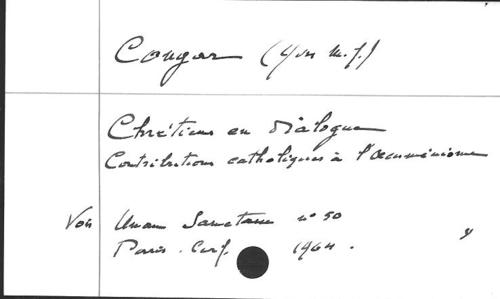 Congar (Yves M.J.)
Chrétiens en dialogue
Contributions catholiques à l'œcuménisme
Voir Unam Sanctam n° 50
Paris. Cerf. 1964.